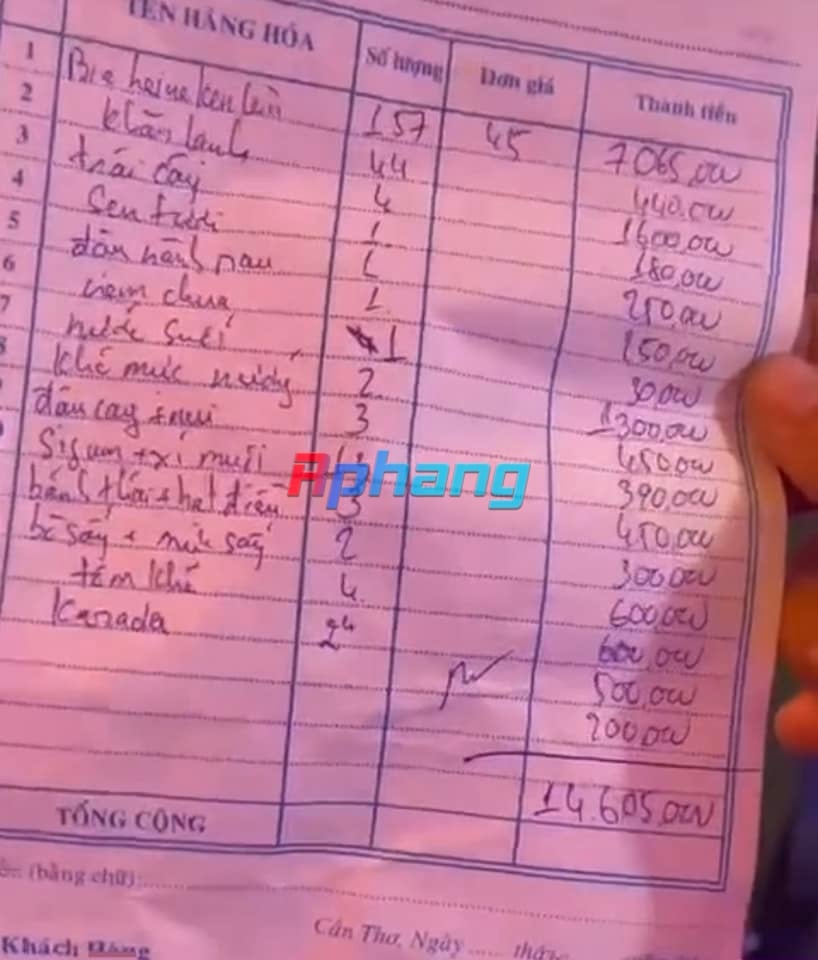 TÊN HÀNG HÓA Số lượng Đơn giá Thành tiền
1 Bia heineken lùn 157 45 7065,000
2 khăn lạnh 44 440,000
3 trái cây 4 1600,000
4 Sen tươi 1 180,000
5 đậu hành nau 1 250,000
6 nem chua 1 150,000
7 nước suối 1 30,000
khô mực nướng 2 1300,000
đậu cay + nui 3 450,000
Sigum + xí muội 390,000
bánh thái + hạt điều 3 450,000
bò sấy + mực sấy 2 300,000
tôm khô 4 600,000
Kanada 24 600,000
500,000
200,000
14.605,000
TỔNG CỘNG
(bằng chữ):
Cần Thơ, Ngày ..... thán
Khách Hàng
Aphang